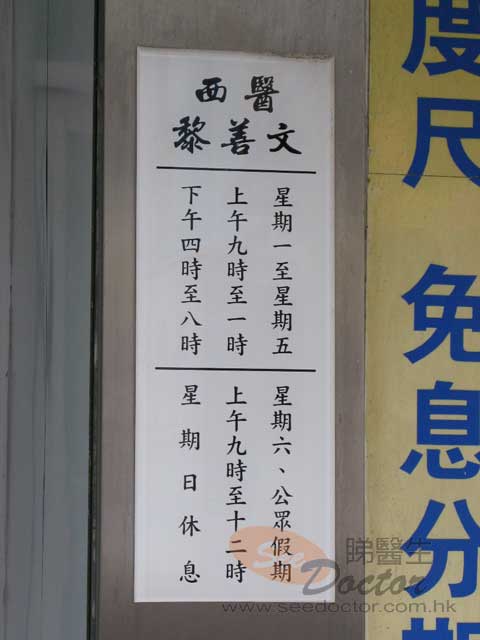 西醫
黎善文
星期一至星期五
上午九時至一時
下午四時至八時
星期六、公眾假期
上午九時至十二時
星期日休息
度尺 免息分期
See Doctor 睇醫生
www.seedoctor.com.hk